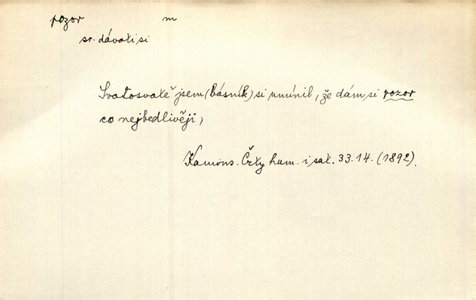 pozor m
sr. dávati si
Svatosvatě jsem (básník) si umínil, že dám si pozor
co nejbedlivěji;
Kamins. Črty hum. i sat. 33.14. (1892).